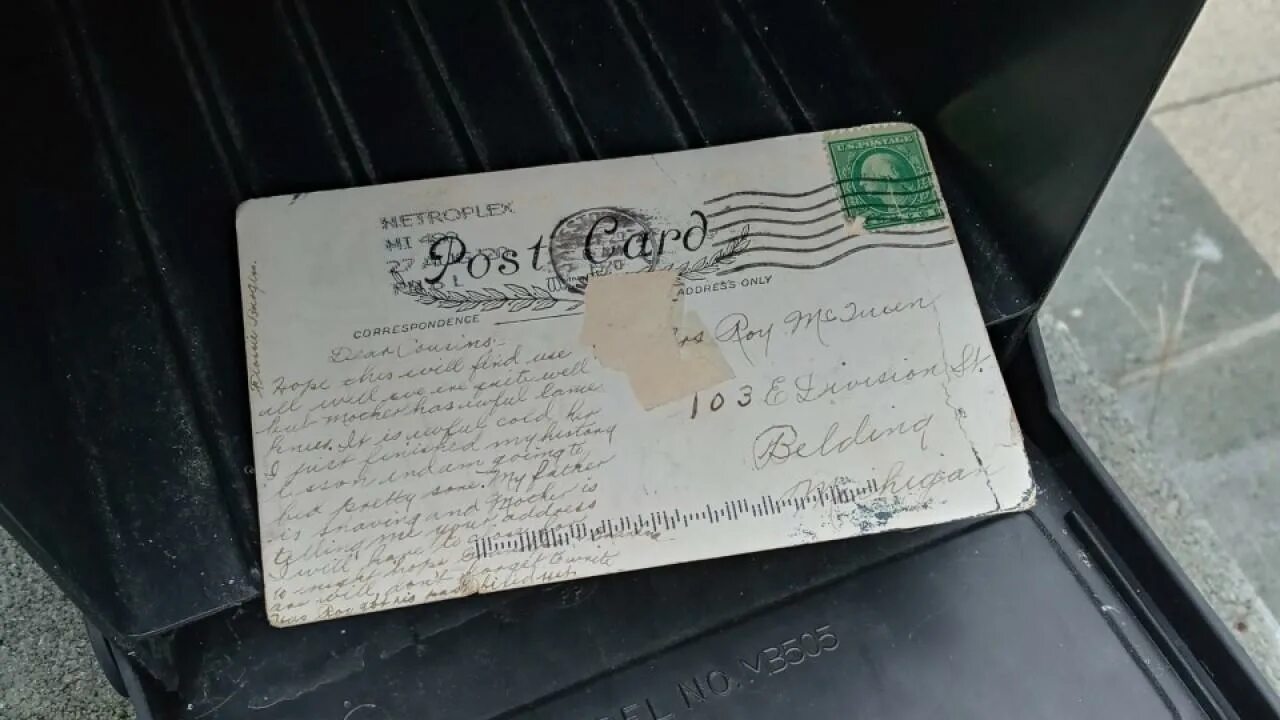 U.S.POSTAGE
METROPLEX
MI 480
Post Card
CORRESPONDENCE
ADDRESS ONLY
Dear Cousins:-
Hope this will find use
all well we are quite well
but Mother has awful lame
knees. It is awful cold her
I just finished my history
lesson and am going to
bed pretty soon. My father
is shaving and Mother is
telling me your address
I will have to
to night hope
are well don't forget to write
Roy got his
Roy McQueen
103 E Division St.
Belding
Michigan
NO. VB505